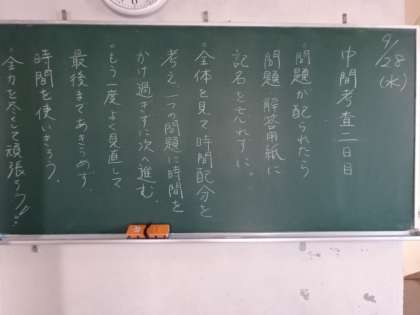 9/28(水)
中間考査二日目
・問題が配られたら
問題、解答用紙に
記名を忘れずに。
・全体を見て時間配分を
考え、一つの問題に時間を
かけ過ぎずに次へ進む。
・もう一度よく見直して
最後まであきらめず、
時間を使いきろう。
・全力を尽くして頑張ろう!!